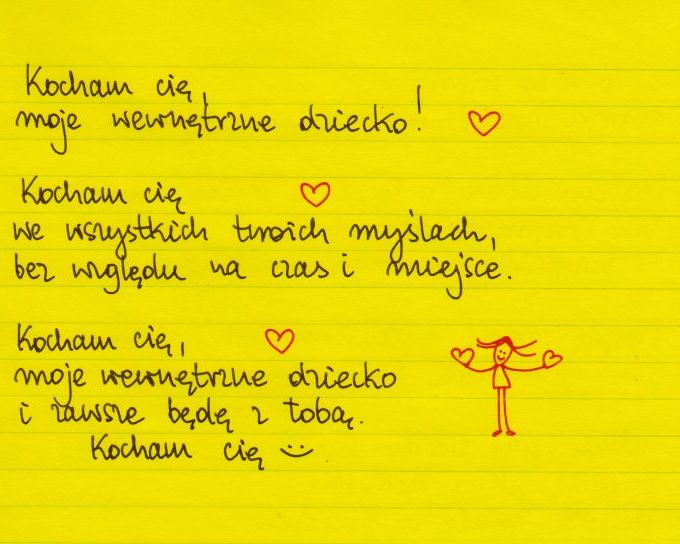 Kocham cię,
moje wewnętrzne dziecko!
Kocham cię
we wszystkich twoich myślach,
bez względu na czas i miejsce.
Kocham cię,
moje wewnętrzne dziecko
i zawsze będę z tobą.
Kocham cię